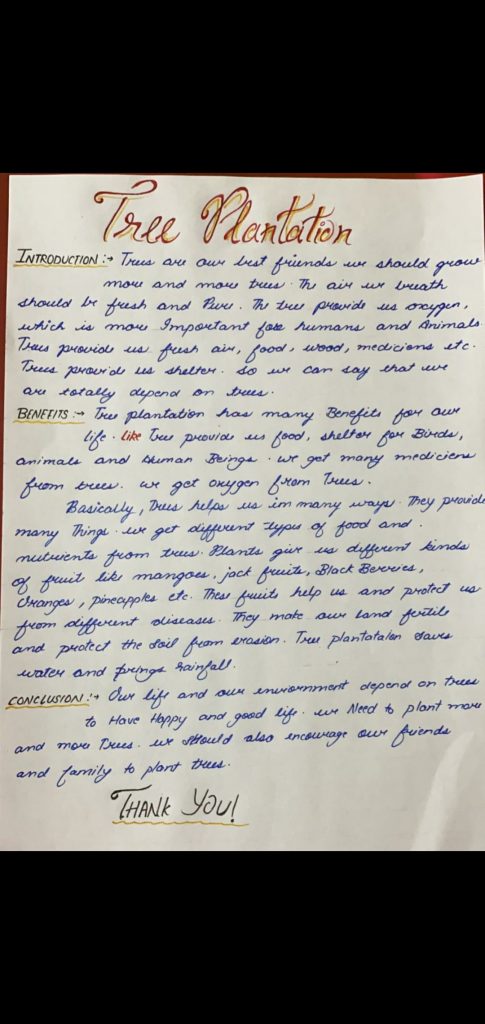 Tree Plantation
INTRODUCTION :→ Trees are our best friends we should grow
more and more trees. The air we breath
should be fresh and Pure. The tree provide us oxygen,
which is more Important for humans and Animals.
Trees provide us fresh air, food, wood, mediciens etc.
Trees provide us shelter. So we can say that we
are totally depend on trees.
BENEFITS :→ Tree plantation has many Benefits for our
life. Like Tree provide us food, shelter for Birds,
animals and Human Beings. we get many mediciens
from trees. we get oxygen from Trees.
Basically, Trees helps us in many ways. They provide
many Things. we get different types of food and.
nutrients from trees. Plants give us different kinds
of fruit like mangoes, jack fruits, Black Berries,
Oranges, pineapples etc. These fruits help us and protect us
from different diseases. They make our Land fertile
and protect the Soil from erosion. Tree plantataion saves
water and brings rainfall.
CONCLUSION :→ Our life and our enviornment depend on trees
to Have Happy and good life. we Need to plant more
and more Trees. we should also encourage our friends
and family to plant trees.
THANK YOU!